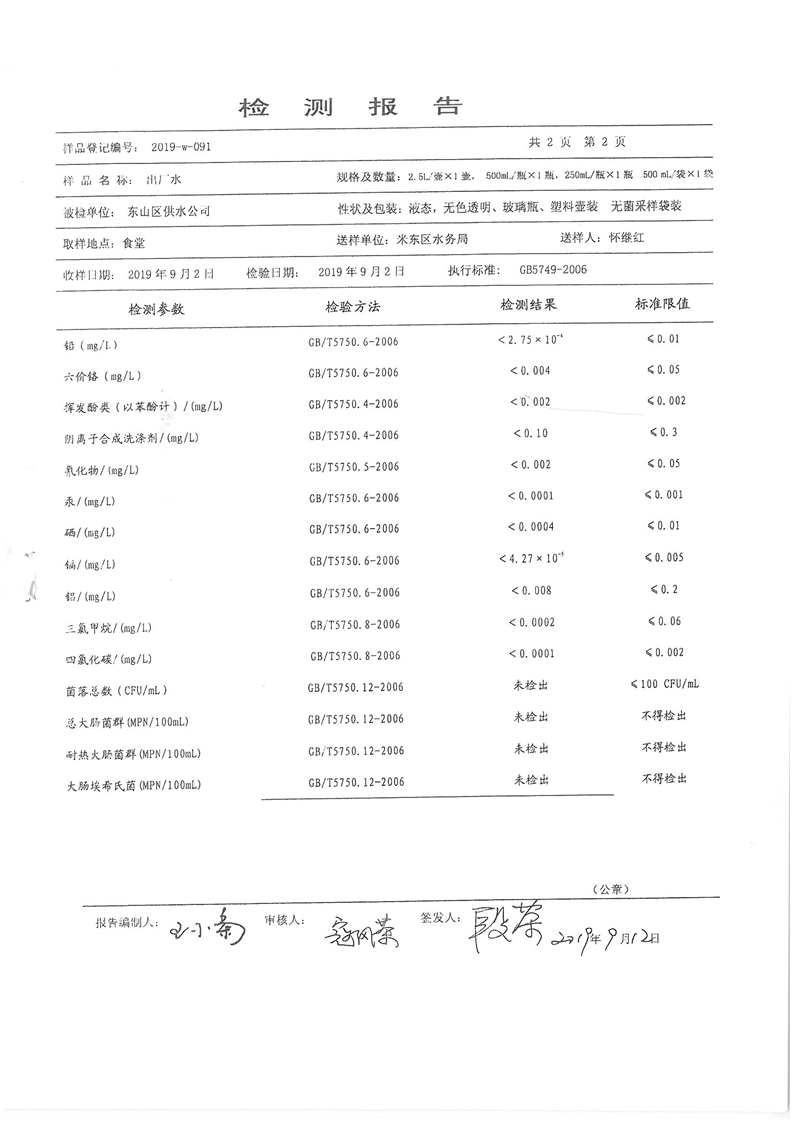 检 测 报 告
样品登记编号： 2019-w-091 共 2 页 第 2 页
样 品 名 称： 出厂水 规格及数量：2.5L/壶×1壶， 500mL/瓶×1瓶，250mL/瓶×1瓶 500 mL/袋×1袋
被检单位： 东山区供水公司 性状及包装：液态，无色透明、玻璃瓶、塑料壶装 无菌采样袋装
取样地点：食堂 送样单位：米东区水务局 送样人：怀继红
收样日期： 2019年9月2日 检验日期： 2019年9月2日 执行标准： GB5749-2006
检测参数 检验方法 检测结果 标准限值
铅（mg/L） GB/T5750.6-2006 <2.75×10⁻⁴ ≤0.01
六价铬（mg/L） GB/T5750.6-2006 <0.004 ≤0.05
挥发酚类（以苯酚计）/(mg/L) GB/T5750.4-2006 <0.002 ≤0.002
阴离子合成洗涤剂/(mg/L) GB/T5750.4-2006 <0.10 ≤0.3
氰化物/(mg/L) GB/T5750.5-2006 <0.002 ≤0.05
汞/(mg/L) GB/T5750.6-2006 <0.0001 ≤0.001
硒/(mg/L) GB/T5750.6-2006 <0.0004 ≤0.01
镉/(mg/L) GB/T5750.6-2006 <4.27×10⁻⁵ ≤0.005
铝/(mg/L) GB/T5750.6-2006 <0.008 ≤0.2
三氯甲烷/(mg/L) GB/T5750.8-2006 <0.0002 ≤0.06
四氯化碳/(mg/L) GB/T5750.8-2006 <0.0001 ≤0.002
菌落总数（CFU/mL） GB/T5750.12-2006 未检出 ≤100 CFU/mL
总大肠菌群(MPN/100mL) GB/T5750.12-2006 未检出 不得检出
耐热大肠菌群(MPN/100mL) GB/T5750.12-2006 未检出 不得检出
大肠埃希氏菌(MPN/100mL) GB/T5750.12-2006 未检出 不得检出
（公章）
报告编制人： 审核人： 签发人： 段荣 2019年9月12日